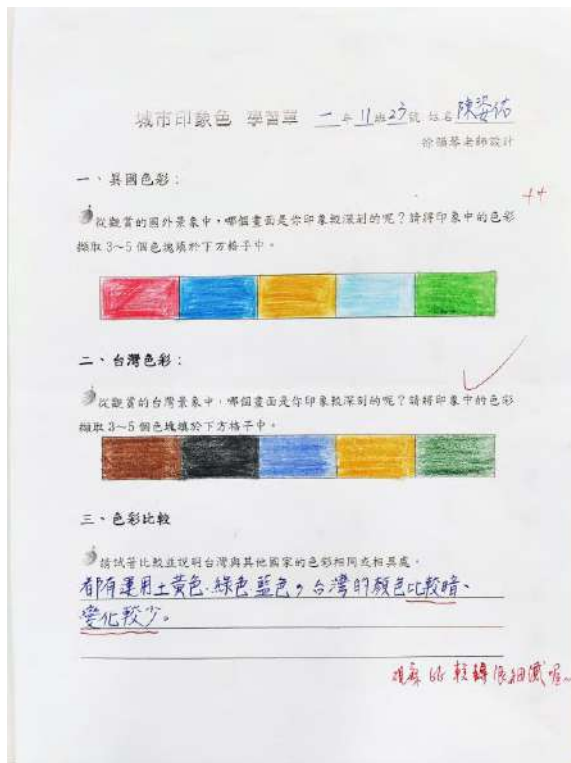 城市印象色 學習單 一年11班23號 姓名陳姿佑
徐頤琴老師設計
一、異國色彩：
++
從觀賞的國外景象中，哪個畫面是你印象較深刻的呢？請將印象中的色彩
擷取3～5個色塊填於下方格子中。
二、台灣色彩：
從觀賞的台灣景象中，哪個畫面是你印象較深刻的呢？請將印象中的色彩
擷取3～5個色塊填於下方格子中。
三、色彩比較
請試著比較並說明台灣與其他國家的色彩相同或相異處。
都有運用土黃色、綠色、藍色，台灣的顏色比較暗、
變化較少。
觀察的很細膩喔~